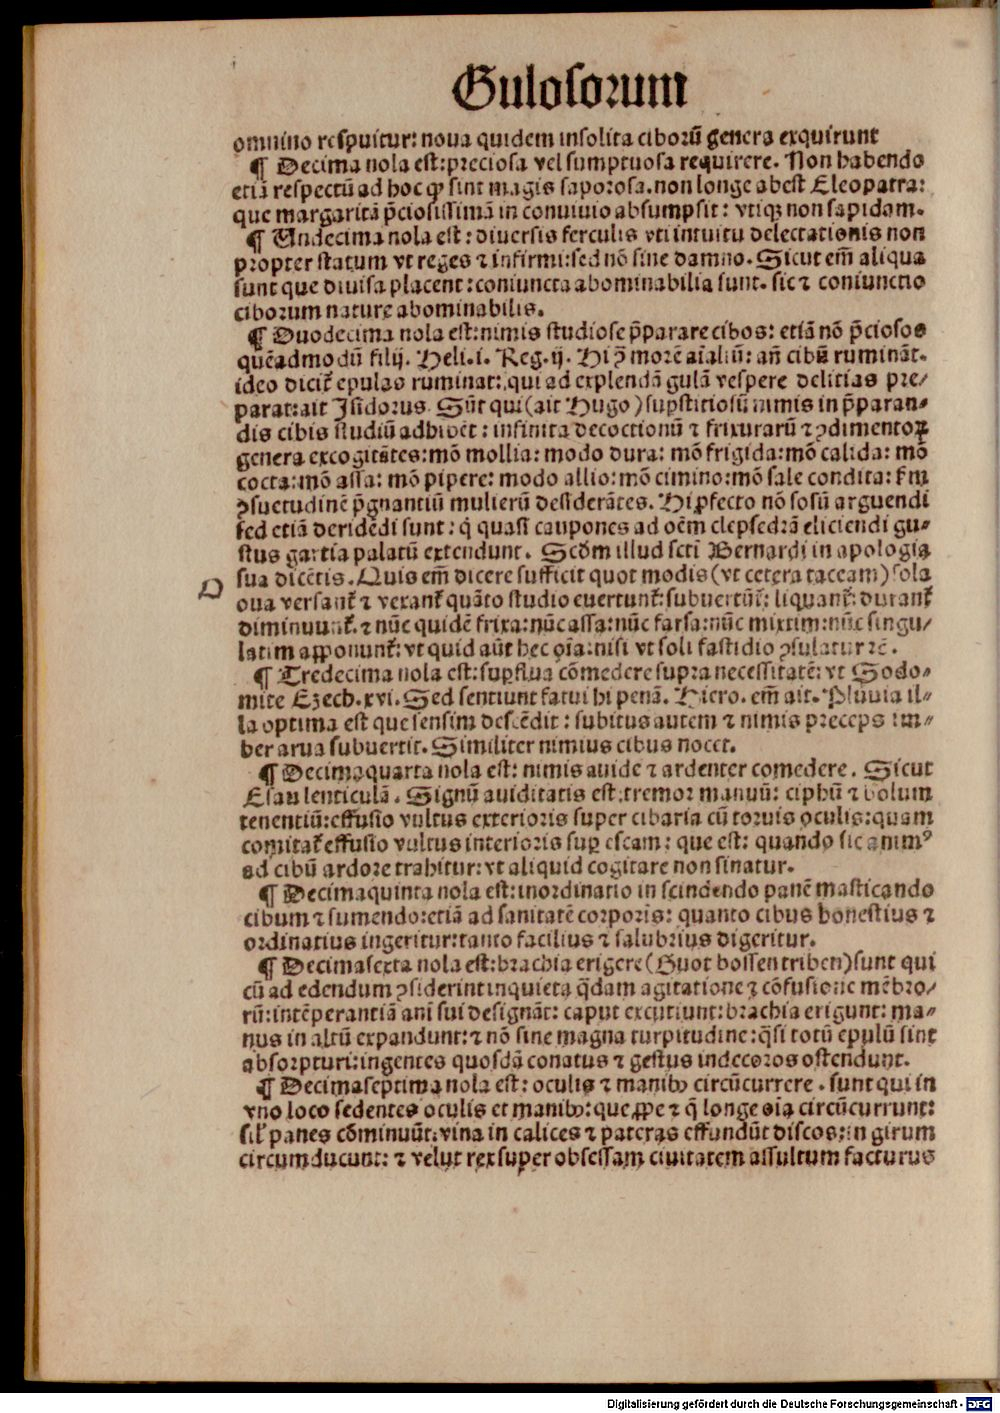 Gulosorum
omnino respuitur: noua quidem insolita ciborũ genera exquirunt
¶ Decima nola est: preciosa vel sumptuosa requirere. Non habendo
etiã respectũ ad hoc ꝙ sint magis saporosa. non longe abest Cleopatra:
que margaritã p̃ciosissimã in conuiuio absumpsit: vtiqꝫ non sapidam.
¶ Undecima nola est: diuersis ferculis vti intuitu delectationis non
propter statum vt reges ⁊ infirmi: sed nõ sine damno. Sicut em̃ aliqua
sunt que diuisa placent: coniuncta abominabilia sunt. sic ⁊ coniunctio
ciborum nature abominabilis.
¶ Duodecima nola est: nimis studiose p̃parare cibos: etiã nõ p̃ciosos
quẽadmodũ filij. Heli. i. Reg. ij. Hi p̃ morẽ aĩaliũ: añ cibũ ruminãt.
ideo dicit᷑ epulas ruminat: qui ad explendã gulã vespere delitias pre⸗
parat: ait Isidorus. Sũt qui (ait Hugo) supstitiosũ nimis in p̃paran⸗
dis cibis studiũ adhibẽt: infinita decoctionũ ⁊ frixurarũ ⁊ ꝯdimentoꝝ
genera excogitãtes: mõ mollia: modo dura: mõ frigida: mõ calida: mõ
cocta: mõ assa: mõ pipere: modo allio: mõ cimino: mõ sale condita: k̃m
ꝯsuetudinẽ p̃gnantiũ mulierũ desiderãtes. Hi ꝓfecto nõ solũ arguendi
sed etiã deridẽdi sunt: q̃ quasi caupones ad oẽm clepsedrã eliciendi gu⸗
stus gartia palatũ extendunt. Scd̃m illud scti Bernardi in apologia
sua dicẽtis. Quis em̃ dicere sufficit quot modis (vt cetera taceam) sola
oua versant᷑ ⁊ vexant᷑ quãto studio euertunt᷑: subuertũt᷑: liquant᷑: durant᷑
diminuunt᷑. ⁊ nũc quidẽ frixa: nũc assa: nũc farsa: nũc mixtim: nũc singu⸗
latim apponunt᷑: vt quid aũt hec oĩa: nisi vt soli fastidio ꝯsulatur ⁊ẽ.
¶ Tredecima nola est: suꝑflua cõmedere supra necessitatẽ: vt Sodo⸗
mite Ezech. xvi. Sed sentiunt fatui hi penã. Hiero. em̃ ait. Pluuia il⸗
la optima est que sensim descẽdit: subitus autem ⁊ nimis preceps im⸗
ber arua subuertit. Similiter nimius cibus nocet.
¶ Decimaquarta nola est: nimis auide ⁊ ardenter comedere. Sicut
Esau lenticulã. Signũ auiditatis est: tremor manuũ: ciphũ ⁊ bolum
tenentiũ: effusio vultus exterioris super cibaria cũ toruis oculis: quam
comitat᷑ effusio vultus interioris suꝑ escam: que est: quando sic animꝰ
ad cibũ ardore trahitur: vt aliquid cogitare non sinatur.
¶ Decimaquinta nola est: inordinatio in scindendo panẽ masticando
cibum ⁊ sumendo: etiã ad sanitatẽ corporis: quanto cibus honestius ⁊
ordinatius ingeritur: tanto facilius ⁊ salubrius digeritur.
¶ Decimasexta nola est: brachia erigere (Guot bossen triben) sunt qui
cũ ad edendum ꝯsiderint inquieta q̃dam agitatione ⁊ cõfusione mẽbro⸗
rũ: intẽperantiã ani sui designãt: caput excutiunt: brachia erigunt: ma⸗
nus in altũ expandunt: ⁊ nõ sine magna turpitudine: q̃si totũ epulũ sint
absorpturi: ingentes quosdã conatus ⁊ gestus indecoros ostendunt.
¶ Decimaseptima nola est: oculis ⁊ manibꝫ circũcurrere. sunt qui in
vno loco sedentes oculis et manibꝫ: que ꝓpe ⁊ q̃ longe oĩa circũcurrunt:
sil᷑ panes cõminuũt: vina in calices ⁊ pateras effundũt discos: in girum
circumducunt: ⁊ velut rex super obsessam ciuitatem assultum facturus
Digitalisierung gefördert durch die Deutsche Forschungsgemeinschaft - DFG